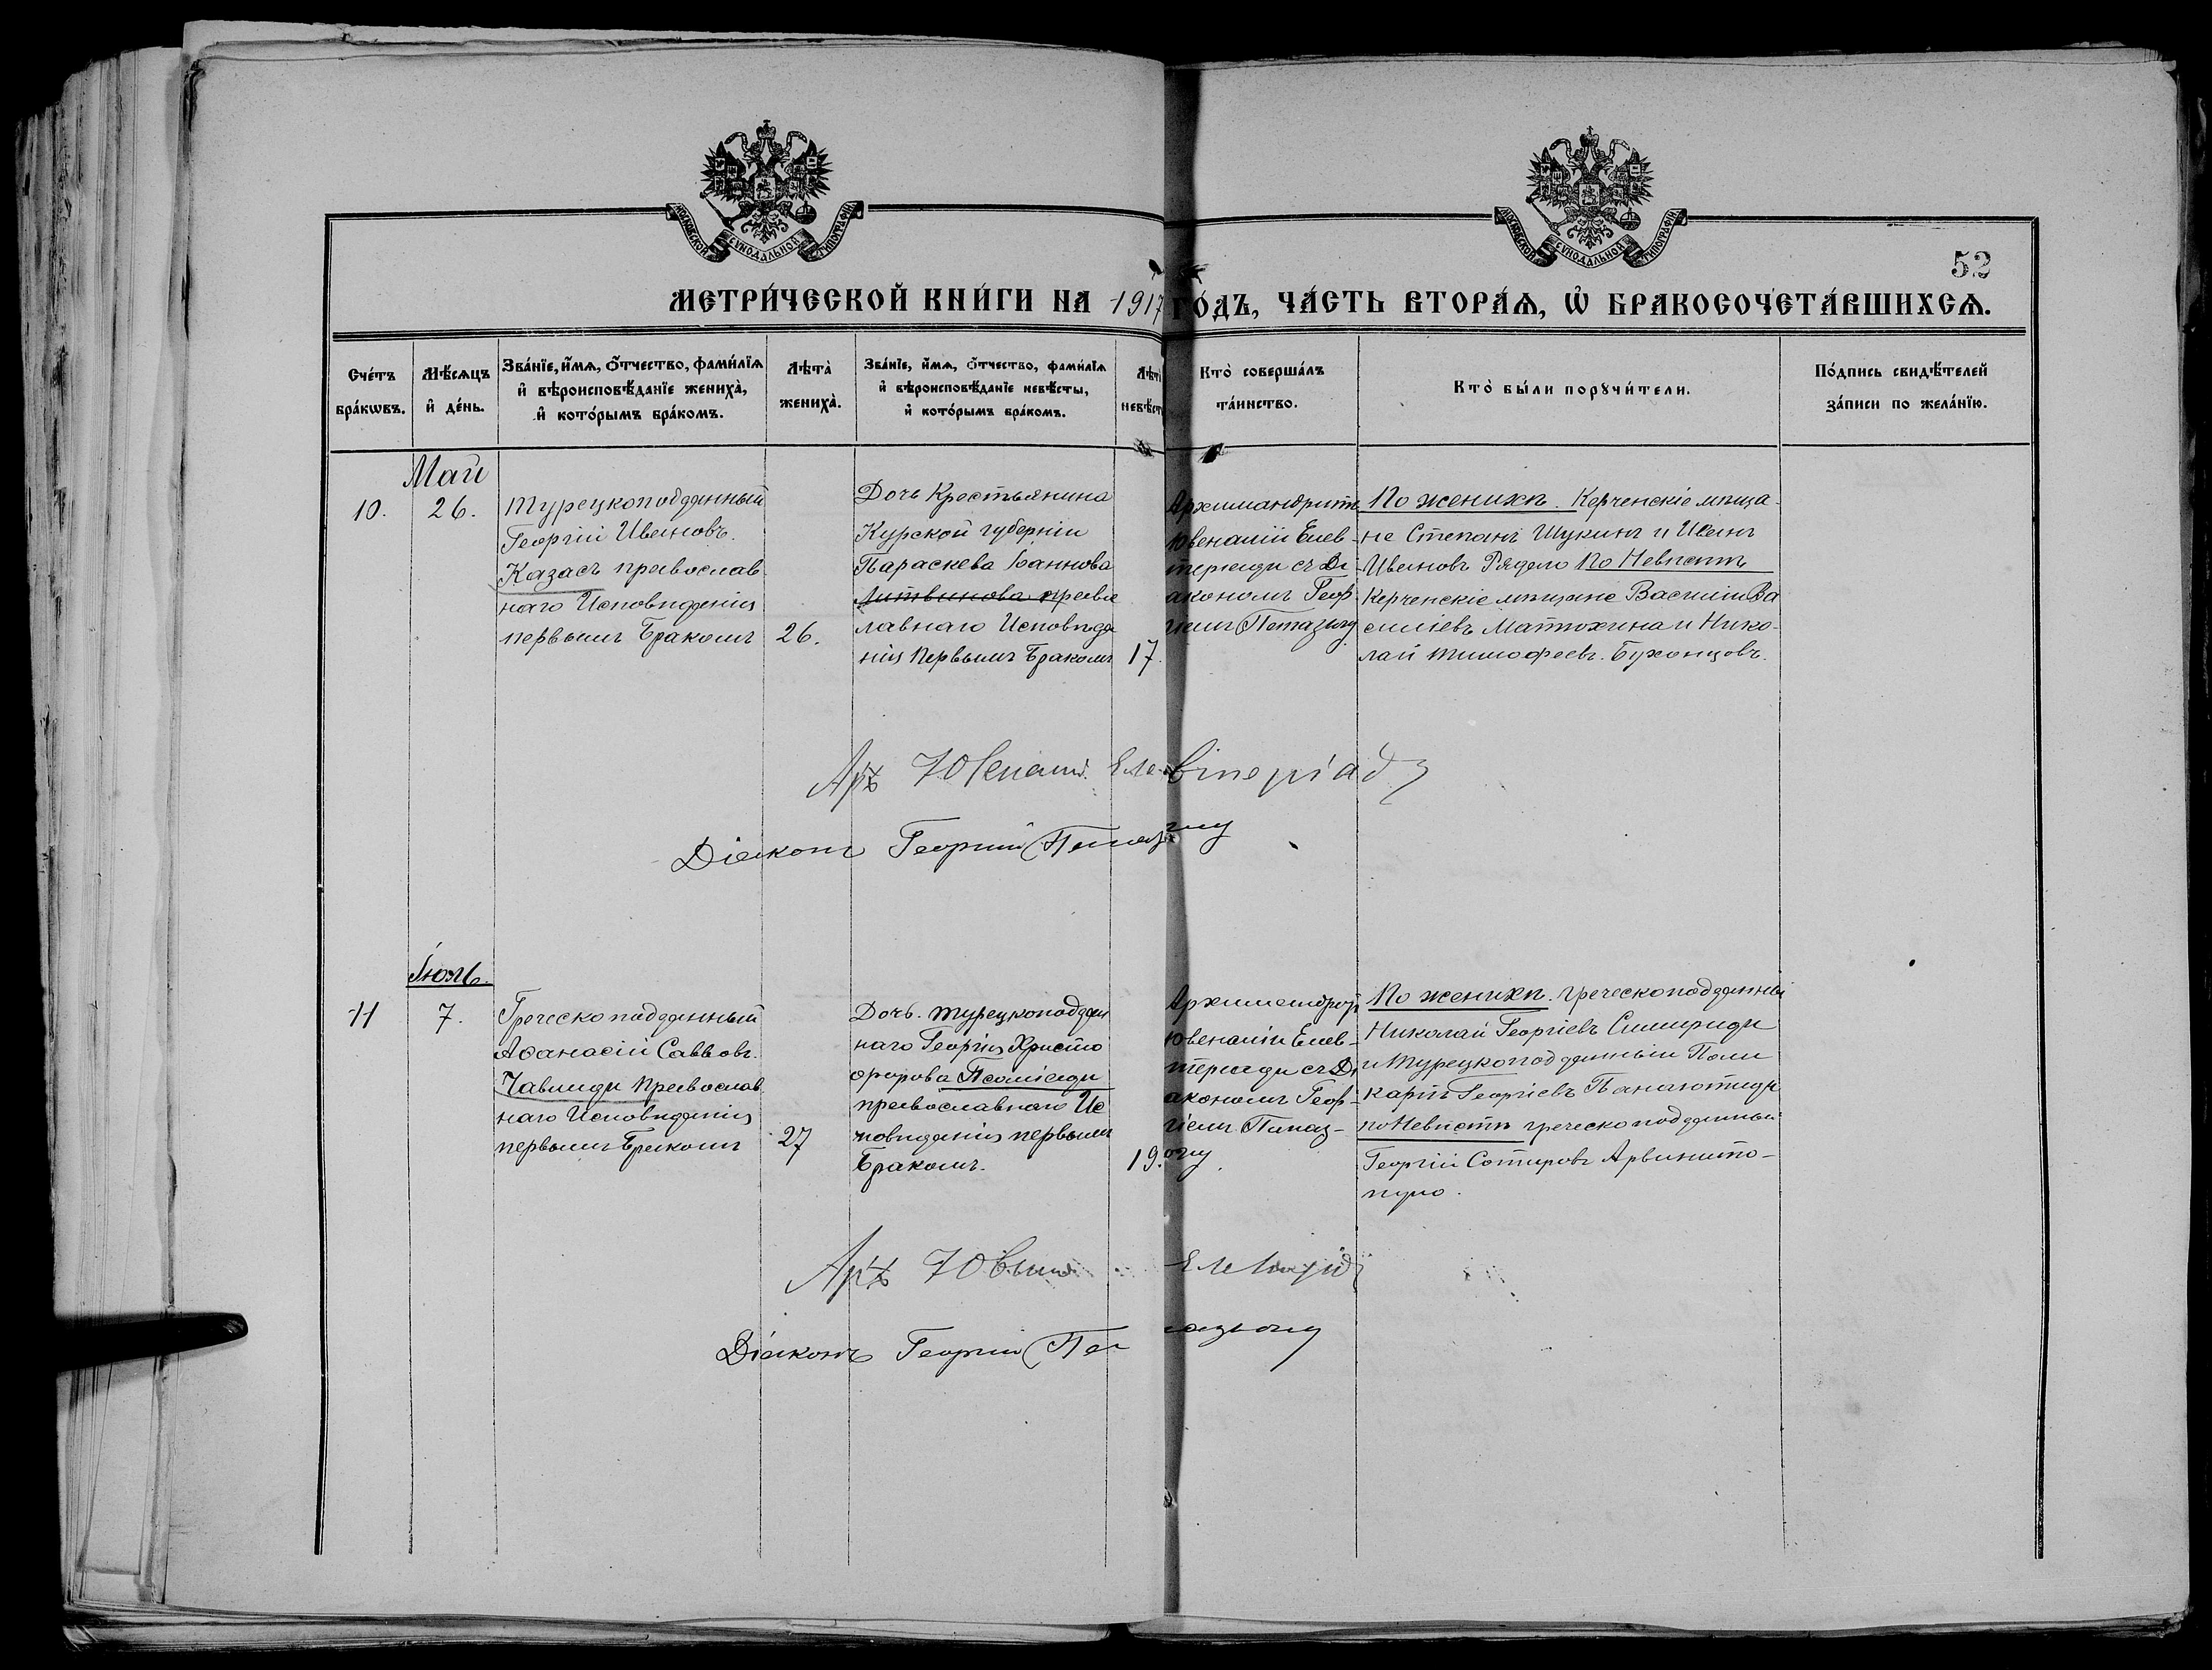 МОСКОВСКОЙ СѴНОДАЛЬНОЙ ТИПОГРАФІИ
МОСКОВСКОЙ СѴНОДАЛЬНОЙ ТИПОГРАФІИ
52
МЕТРИ́ЧЕСКОЙ КНИ́ГИ НА 1917 ГО́ДЪ, ЧА́СТЬ ВТОРА́Ѧ, Ѡ҆ БРАКОСОЧЕТА́ВШИХСѦ.
Сче́тъ бра́кѡвъ.
Мѣ́сѧцъ и҆ де́нь.
Зва́нїе, и҆́мѧ, ѻ҆́тчество, фами́лїѧ
и҆ вѣроисповѣ́данїе жениха̀,
и҆ кото́рымъ бра́комъ.
Лѣта̀ жениха̀.
Зва́нїе, и҆́мѧ, ѻ҆́тчество, фами́лїѧ
и҆ вѣроисповѣ́данїе невѣ́сты,
и҆ кото́рымъ бра́комъ.
Лѣта̀ невѣ́ст
Кто̀ соверша́лъ
та́инство.
Кто̀ бы́ли порꙋчи́тели.
По́дпись свидѣ́телей
за́писи по жела́нїю.
Май
10.
26.
Турецкоподданный
Георгій Ивановъ.
Казасъ православ
наго Исповѣданія
первымъ бракомъ
26.
Дочь Крестьянина
Курской губерніи
Параскева Іаннова
Литвинова правос
лавнаго Исповѣда
нія Первымъ Бракомъ
17.
Архимандритъ
Ювеналій Елев-
теріади съ Ді-
акономъ Геор
гіемъ Папазоглу
По женихѣ. Керченскіе мѣща-
не Степанъ Щукинъ и Иванъ
Ивановъ Рядело По Невѣстѣ
Керченскіе мѣщане Василій Ва
силіевъ Матюхина и Нико-
лай Тимофеевъ. Буханцовъ.
Арх Ювеналій Елевтеріади
Діаконъ Георгій Папазоглу
Іюль.
11
7.
Греческоподданный
Аѳанасій Саввовъ.
Чавлиди Православ
наго Исповѣданія
первымъ Бракомъ
27
Дочь. Турецкоподдан
наго Георгія Христо
форова Псоміади
православнаго Ис
повѣданія первымъ
Бракомъ.
19.
Архимандритъ
Ювеналій Елев-
теріади съ Ді
акономъ Геор-
гіемъ Папаз-
оглу.
По женихѣ. греческоподданный
Николай Георгіевъ Симириди
и Турецкоподданный Поли
карпъ Георгіевъ Панаіотиди
по Невѣстѣ греческоподданный
Георгій Сотировъ Арвинито-
пуло.
Арх Ювеналій Елевтеріади
Діаконъ Георгій Папазоглу